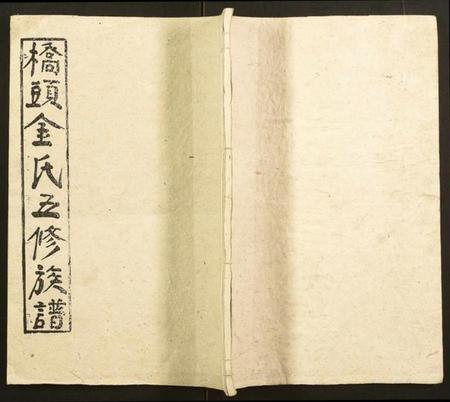 橋頭金氏五修族譜